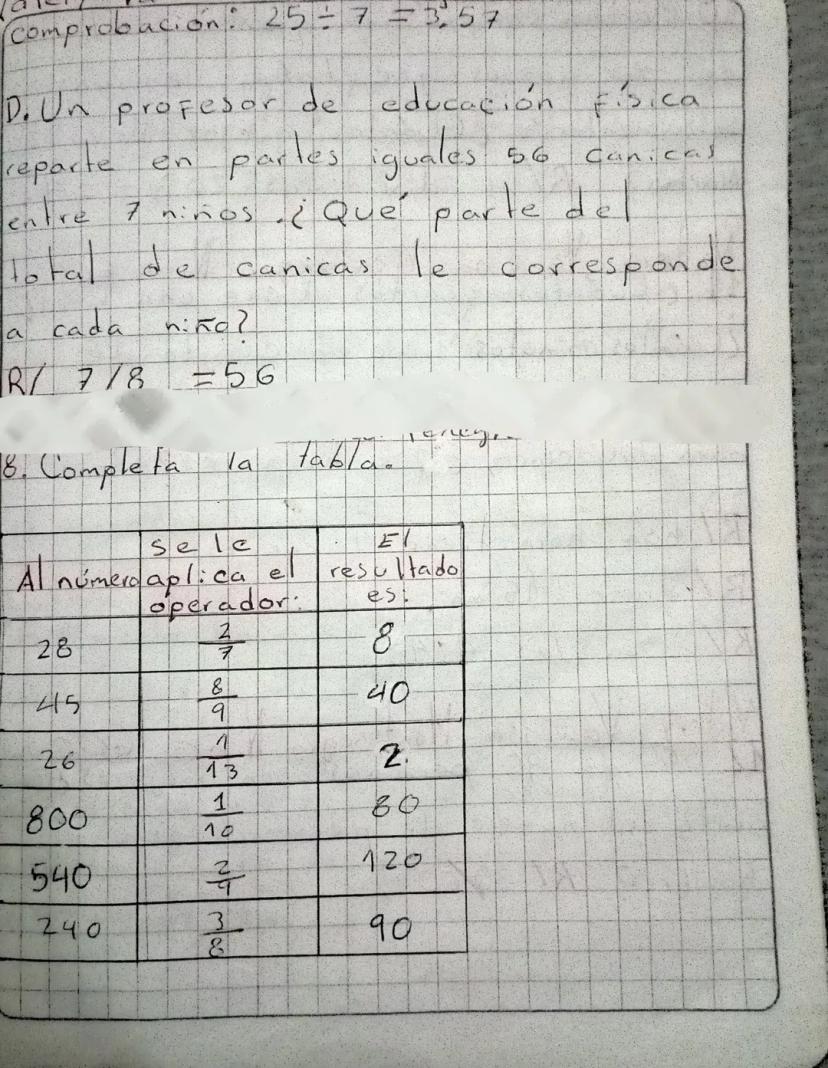 comprobación: 25 ÷ 7 = 3.57
D. Un profesor de educación física
reparte en partes iguales 56 canicas
entre 7 niños. ¿Qué parte del
total de canicas le corresponde
a cada niño?
R/ 7/8 = 56
8. Completa la tabla.
Al número | se le aplica el operador: | El resultado es:
28 | 2/7 | 8
45 | 8/9 | 40
26 | 1/13 | 2.
800 | 1/10 | 80
540 | 2/9 | 120
240 | 3/8 | 90